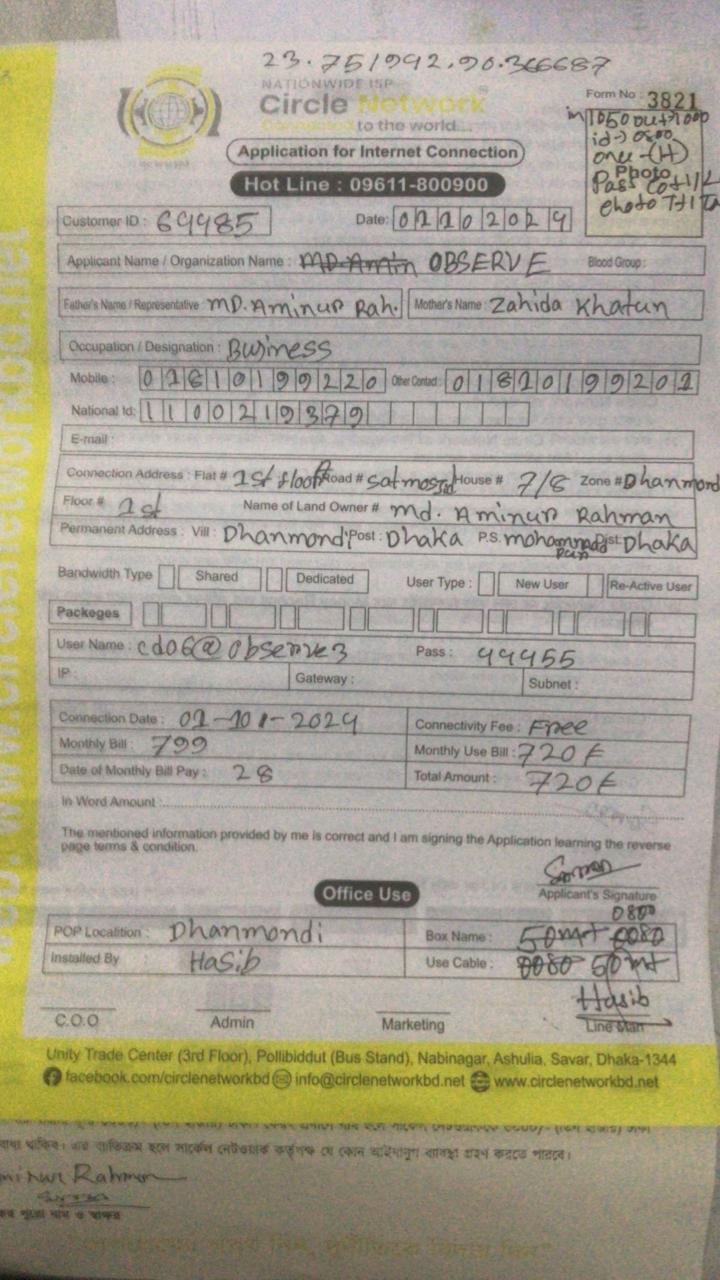 23.751992.90.366687
NATIONWIDE ISP
Circle Network
Connected to the world...
Form No : 3821
in 1050 out 1000
id-) 0800
onu-(H)
Photo
Application for Internet Connection
Hot Line : 09611-800900
Customer ID : 69985
Date: 01102024
Applicant Name / Organization Name : MD. Amin OBSERVE Blood Group :
Father's Name / Representative MD. Aminur Rah. Mother's Name : Zahida Khatun
Occupation / Designation : Business
Mobile : 01610199220 Other Contact : 01810199201
National Id: 1100219379
E-mail :
Connection Address : Flat # 1st floor Road # Satmosjid House # 7/8 Zone # Dhanmond
Floor # 1st Name of Land Owner # Md. Aminur Rahman
Permanent Address : Vill : Dhanmondi Post : Dhaka P.S. mohammadpur Dist: Dhaka
Bandwidth Type Shared Dedicated User Type : New User Re-Active User
Packeges
User Name : cd06@observe3 Pass : 44455
IP : Gateway : Subnet :
Connection Date : 01-10-2024 Connectivity Fee : Free
Monthly Bill : 799 Monthly Use Bill : 720৳
Date of Monthly Bill Pay : 28 Total Amount : 720৳
In Word Amount :
The mentioned information provided by me is correct and I am signing the Application learning the reverse
page terms & condition.
Applicant's Signature
Office Use
0800
POP Localition : Dhanmondi Box Name : 50mt 0080
Installed By : Hasib Use Cable : 0080 50mt
Hasib
C.O.O Admin Marketing Line Man
Unity Trade Center (3rd Floor), Pollibiddut (Bus Stand), Nabinagar, Ashulia, Savar, Dhaka-1344
facebook.com/circlenetworkbd info@circlenetworkbd.net www.circlenetworkbd.net
minur Rahman